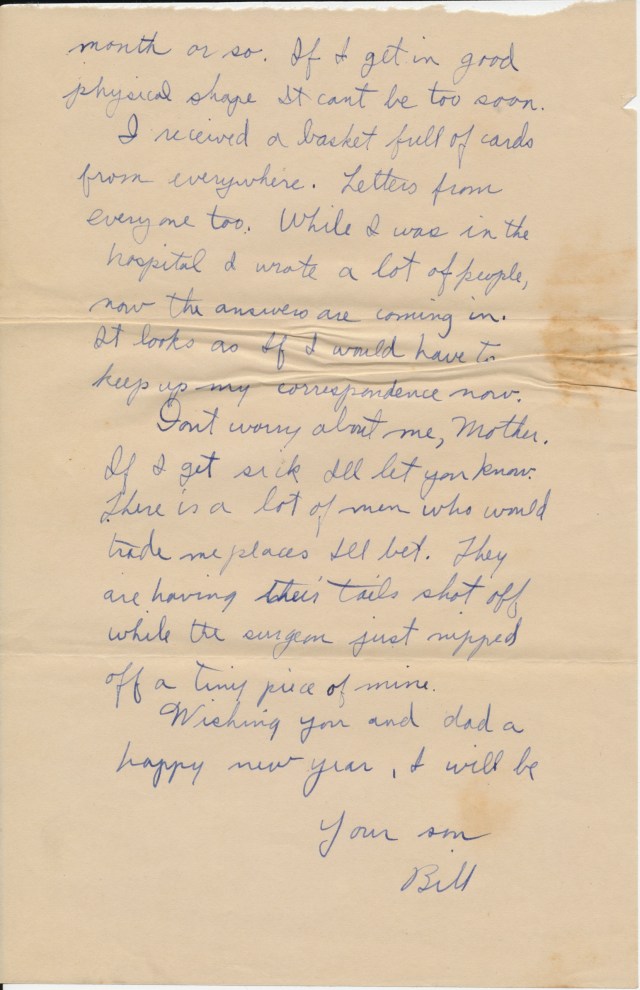 month or so. If I get in good
physical shape It cant be too soon.
I received a basket full of cards
from everywhere. Letters from
everyone too. While I was in the
hospital I wrote a lot of people,
now the answers are coming in.
It looks as If I would have to
keep up my correspondence now.
Dont worry about me, Mother.
If I get sick Ill let you know.
There is a lot of men who would
trade me places Ill bet. They
are having their tails shot off
while the surgeon just nipped
off a tiny piece of mine.
Wishing you and dad a
happy new year, I will be
Your son
Bill